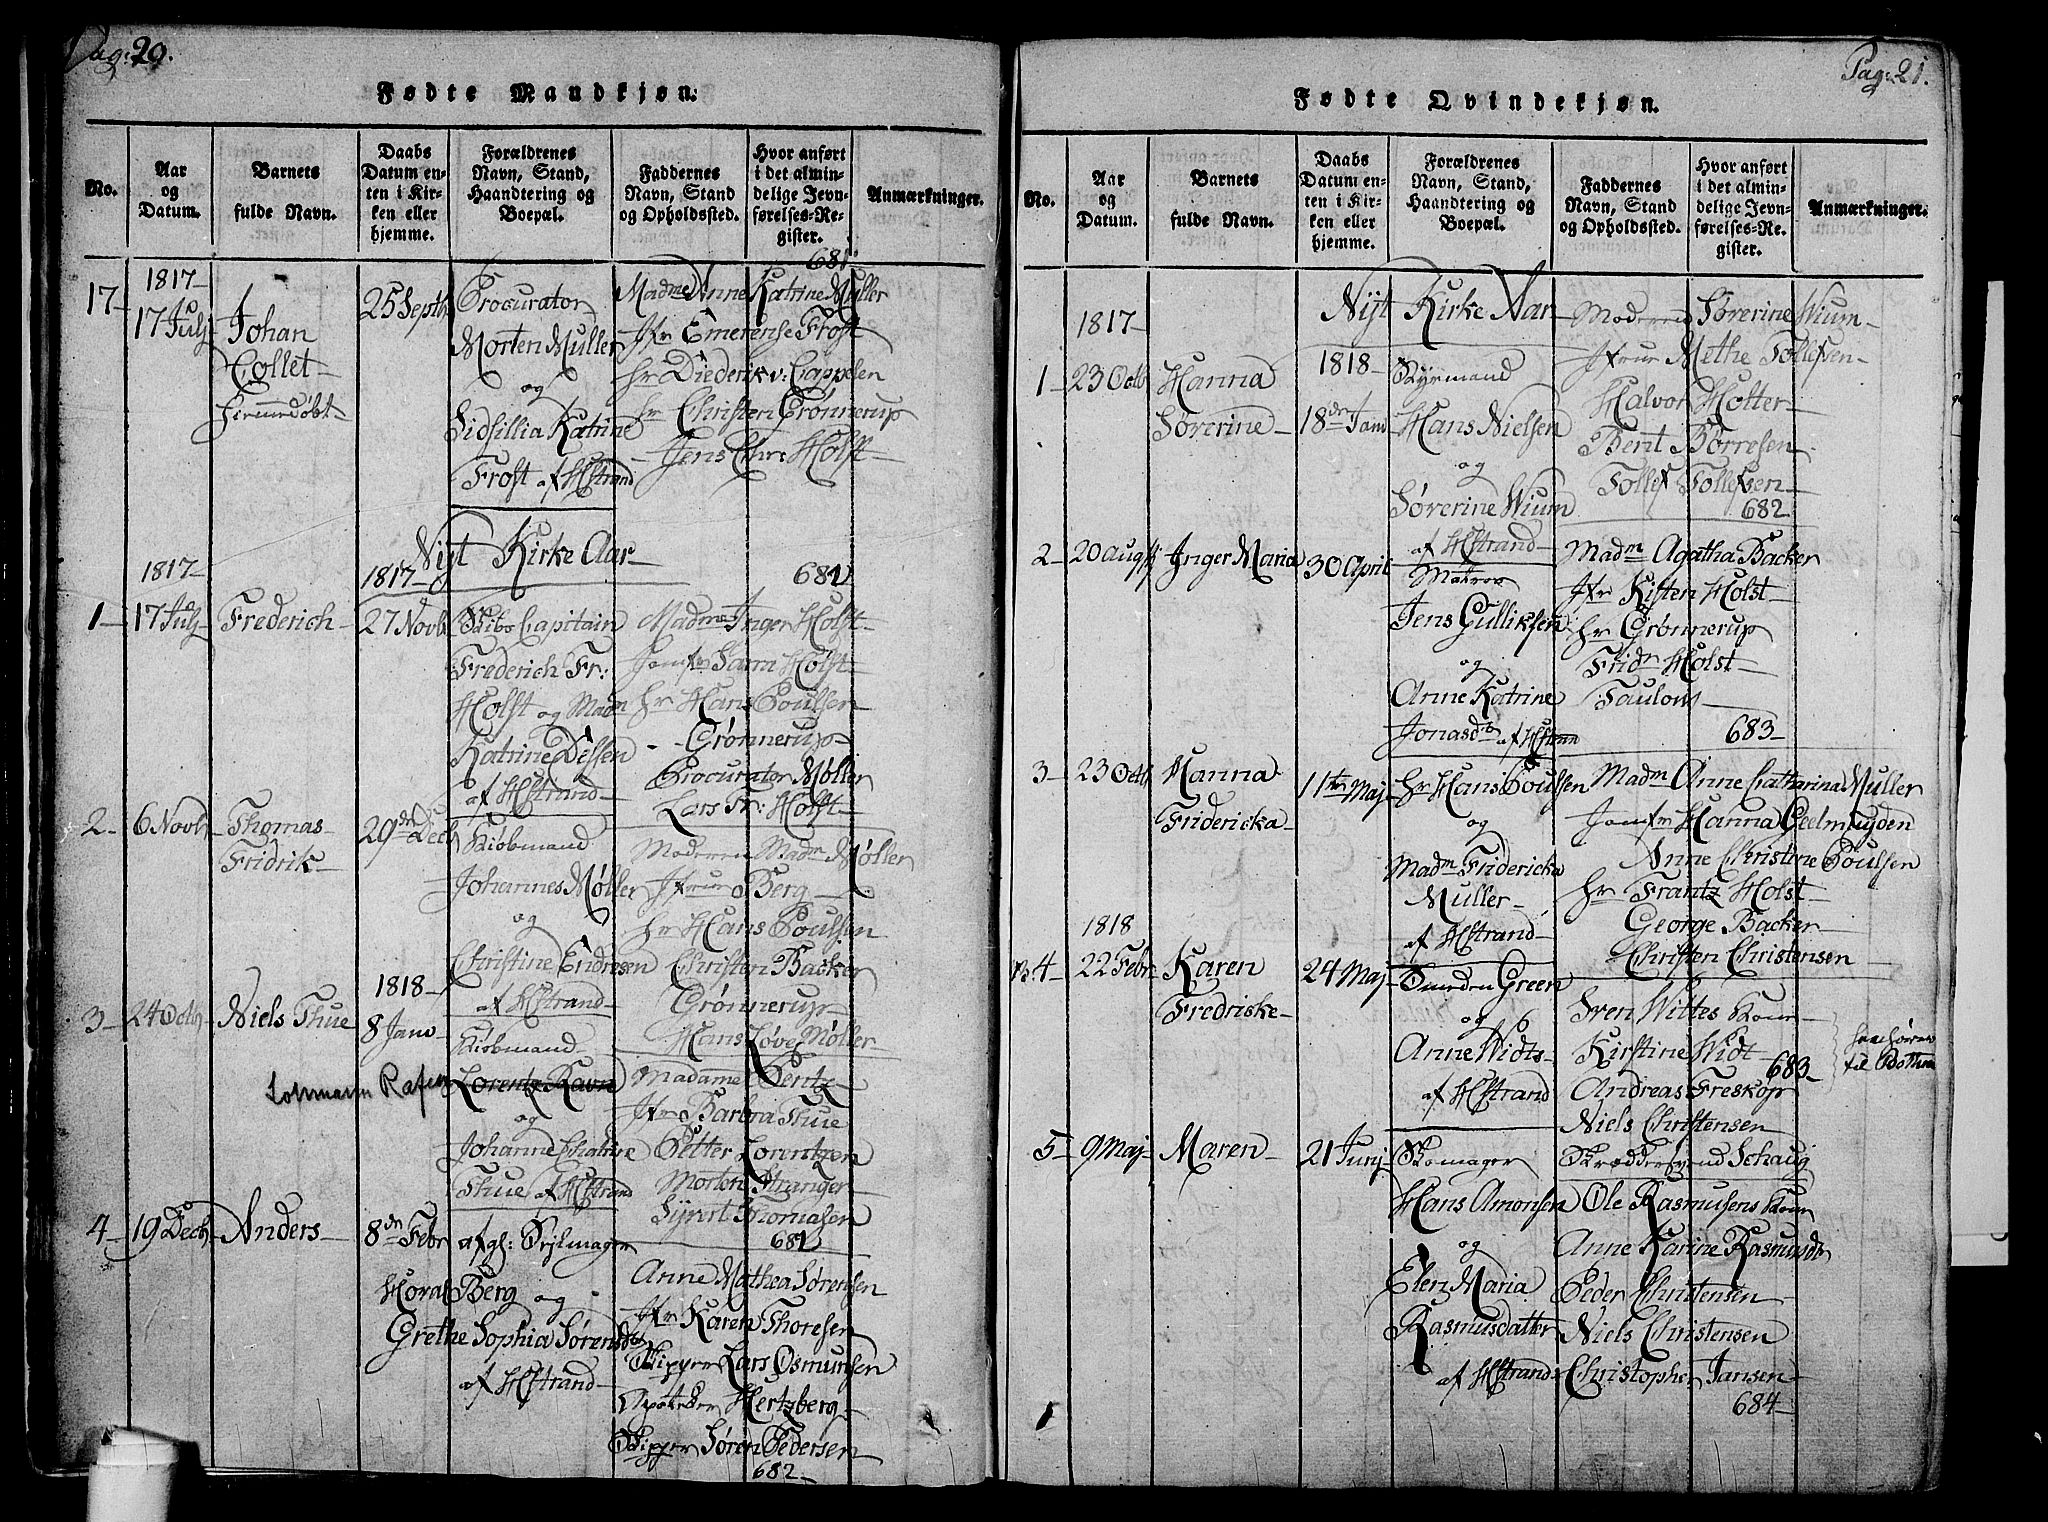 Pag: 20.
Fødte Mandkjøn.
No.
Aar
og
Datum.
Barnets
fulde Navn.
Daabs
Datum en-
ten i Kir-
ken eller
hjemme.
Forældrenes
Navn, Stand,
Haandtering og
Boepæl.
Faddernes
Navn, Stand
og Opholdssted.
Hvor anført
i det almin-
delige Jevn-
førelses-Re-
gister.
Anmærkninger.
17-
1817-
17 Julj
Johan
Collet
hiemmedøbt-
25 Septb
Procurator
Morten Muller
og
Sidsillia Katrine
Frost af HStrand
681
Madme Anne Katrine Muller
Jfr Emerense Frost
hr Diederik v: Cappelen
hr Christen Grønnerup
Jens Chr: Holst-
Nyt Kirke Aar-
1-
1817-
17 Julj
Frederich-
1817-
27 Novb
Skibs Capitain
Frederich Fr:
Holst og Madm
Katrine Dessen
af HStrand-
681
Madme Inger Holst-
Jomfr Holst-
hr Hans Poulsen
- Grønnerup-
Procurator Møller
Lars Fr: Holst-
2-
6 Novb
Thomas-
Fridrik-
29de Decb
Kiøbmand
Johannes Møller
og
Christine Endresen
af HStrand-
Moderen Madm Møller
Jfrue Berg-
hr Hans Poulsen
Christen Backer
Grønnerup-
Hans Løve Møller
3-
24 Octb
Niels Thue
1818-
8 Janv
Kiøbmand
Lorentz Ravn
og
Johanne Chatrine
Thue af HStrand
Madamme Bentz-
Jfr Barbra Thue
Petter Lorentzen
Morten Stranger
Syvert Thomasen
681
4-
19 Decb
Anders-
8de Febr
afgl: Sejlmager
Horas Berg og
Grethe Sophia Sørensdtr
af HStrand-
Anne Mathea Sørensen
Jfr Karen Thoresen
Skipper Lars Osmundsen
Apotheker Hertzberg-
Skipper Søren Pedersen
682-
Pag: 21.
Fødte Qvindekjøn.
No.
Aar
og
Datum.
Barnets
fulde Navn.
Daabs
Datum en-
ten i Kir-
ken eller
hjemme.
Forældrenes
Navn, Stand,
Haandtering og
Boepæl.
Faddernes
Navn, Stand
og Opholdssted.
Hvor anført
i det almin-
delige Jevn-
førelses-Re-
gister.
Anmærkninger.
Nyt Kirke Aar-
1-
1817-
23 Octb
Hanna
Sørerine-
1818-
18de Janv
Styrmand
Hans Nielsen
og
Sørerine Wium
af HStrand-
Moderen Sørerine Wium-
Jfrue Methe Tollefsen-
Halvor Holter-
Bent Børresen
Tollef Tollefsen-
682-
2-
20 Augstj
Inger Maria
30 April
Matros
Jens Gulliksen
og
Anne Katrine
Jonasdtr af HStran
Madm Agatha Backer
Jfr Kisten Holst-
hr Grønnerup
Fridr Holst-
Taulow-
683-
3-
23 Octb
Hanna
Fridericka-
11te Maj-
hr Hans Poulsen
og
Madm Fridericka
Muller-
af HStrand-
Madm Anne Catharina Muller
Jomfr Hanna Geelmuyden
Anne Christine Poulsen
hr Frantz Holst-
George Backer-
Christen Christensen
4-
1818
22 Febr
Karen
Fredriske-
24 Maj-
Smeden Green
og
Anne Widts-
af HStrand
Sven Wittes Kone-
Kirstine Widt
683-
Andreas Freskop
Niels Christensen
til Bothne
5-
9 Maj-
Maren-
21 Junj-
Skomager
Hans Amonsen
og
Elen Maria
Rasmusdatter
af HStrand-
Skrædder Schaug
Ole Rasmusens Kone
Anne Karine Rasmusdtr
Peder Christensen-
Niels Christensen
Christopher Jansen-
684-